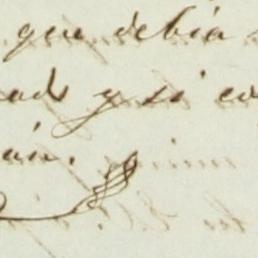 que debia
ad y si co
án.